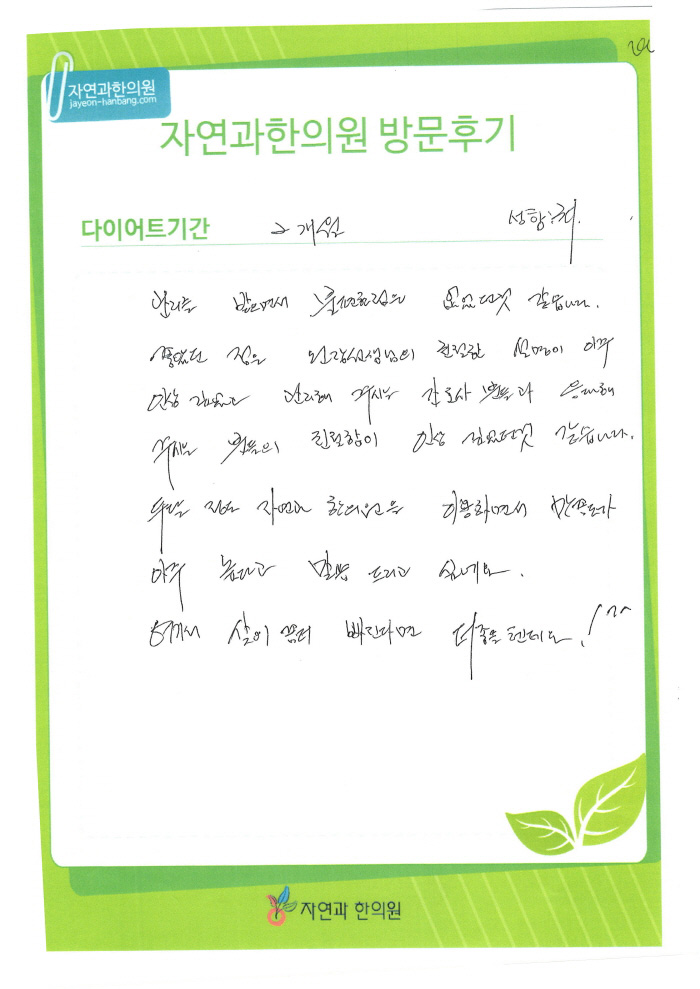 자연과한의원
jayeon-hanbang.com
자연과한의원 방문후기
다이어트기간 2개월 성함:
관리를 받으면서 불편한점은 없었던것 같습니다.
좋았던 점은 원장선생님의 친절한 설명이 아주
인상 깊었고 관리해 주시는 간호사 분들과 응대해
주시는 분들의 친절함이 인상 깊었던것 같습니다.
우선 저는 자연과 한의원을 이용하면서 만족도가
아주 높다고 말씀 드리고 싶네요.
여기서 살이 쫌더 빠진다면 더좋을텐데요! ^^
자연과 한의원